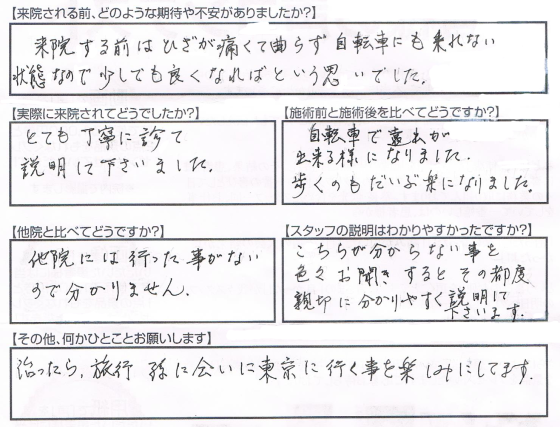 【来院される前、どのような期待や不安がありましたか?】
来院する前はひざが痛くて曲らず自転車にも乗れない
状態なので少しでも良くなればという思いでした。
【実際に来院されてどうでしたか?】
とても丁寧に診て
説明して下さいました。
【施術前と施術後を比べてどうですか?】
自転車で遠出が
出来る様になりました。
歩くのもだいぶ楽になりました。
【他院と比べてどうですか?】
他院には行った事がない
ので分かりません。
【スタッフの説明はわかりやすかったですか?】
こちらが分からない事を
色々お聞きするとその都度
親切に分かりやすく説明して
下さいます。
【その他、何かひとことお願いします】
治ったら、旅行 孫に会いに東京に行く事を楽しみにしてます。